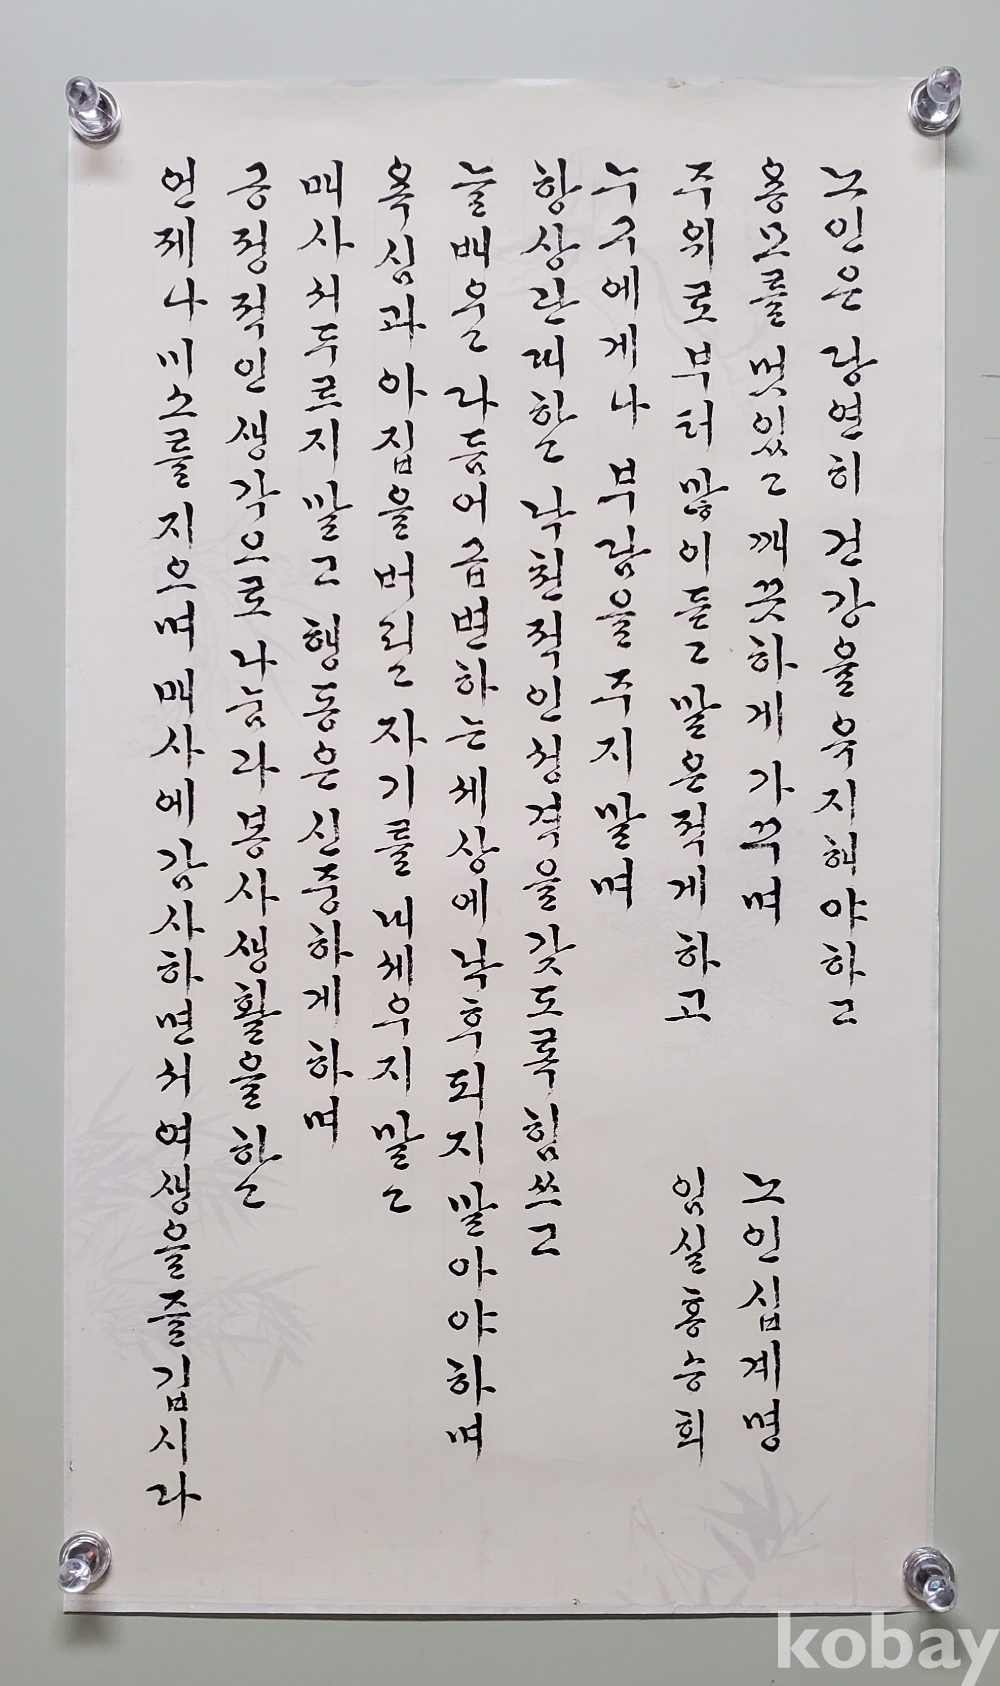 노인은 당연히 건강을 유지해야하고
용모를 멋있고 깨끗하게 가꾸며
주위로부터 많이 듣고 말은 적게 하고
누구에게나 부담을 주지 말며
항상 관대하고 낙천적인 성격을 갖도록 힘쓰고
늘 배우고 다듬어 급변하는 세상에 낙후되지 말아야하며
욕심과 아집을 버리고 자기를 내세우지 말고
매사 서두르지 말고 행동은 신중하게 하며
긍정적인 생각으로 나눔과 봉사생활을 하고
언제나 미소를 지으며 매사에 감사하면서 여생을 즐깁시다
노인십계명
임실 홍승회
kobay